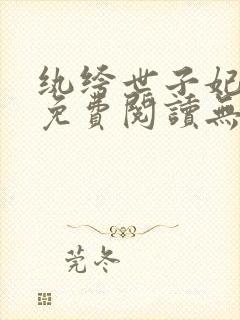 纨绔世子妃
免費閱讀無
莞冬